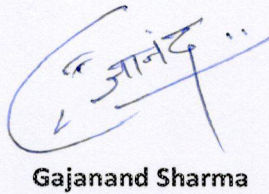 आनंद
Gajanand Sharma